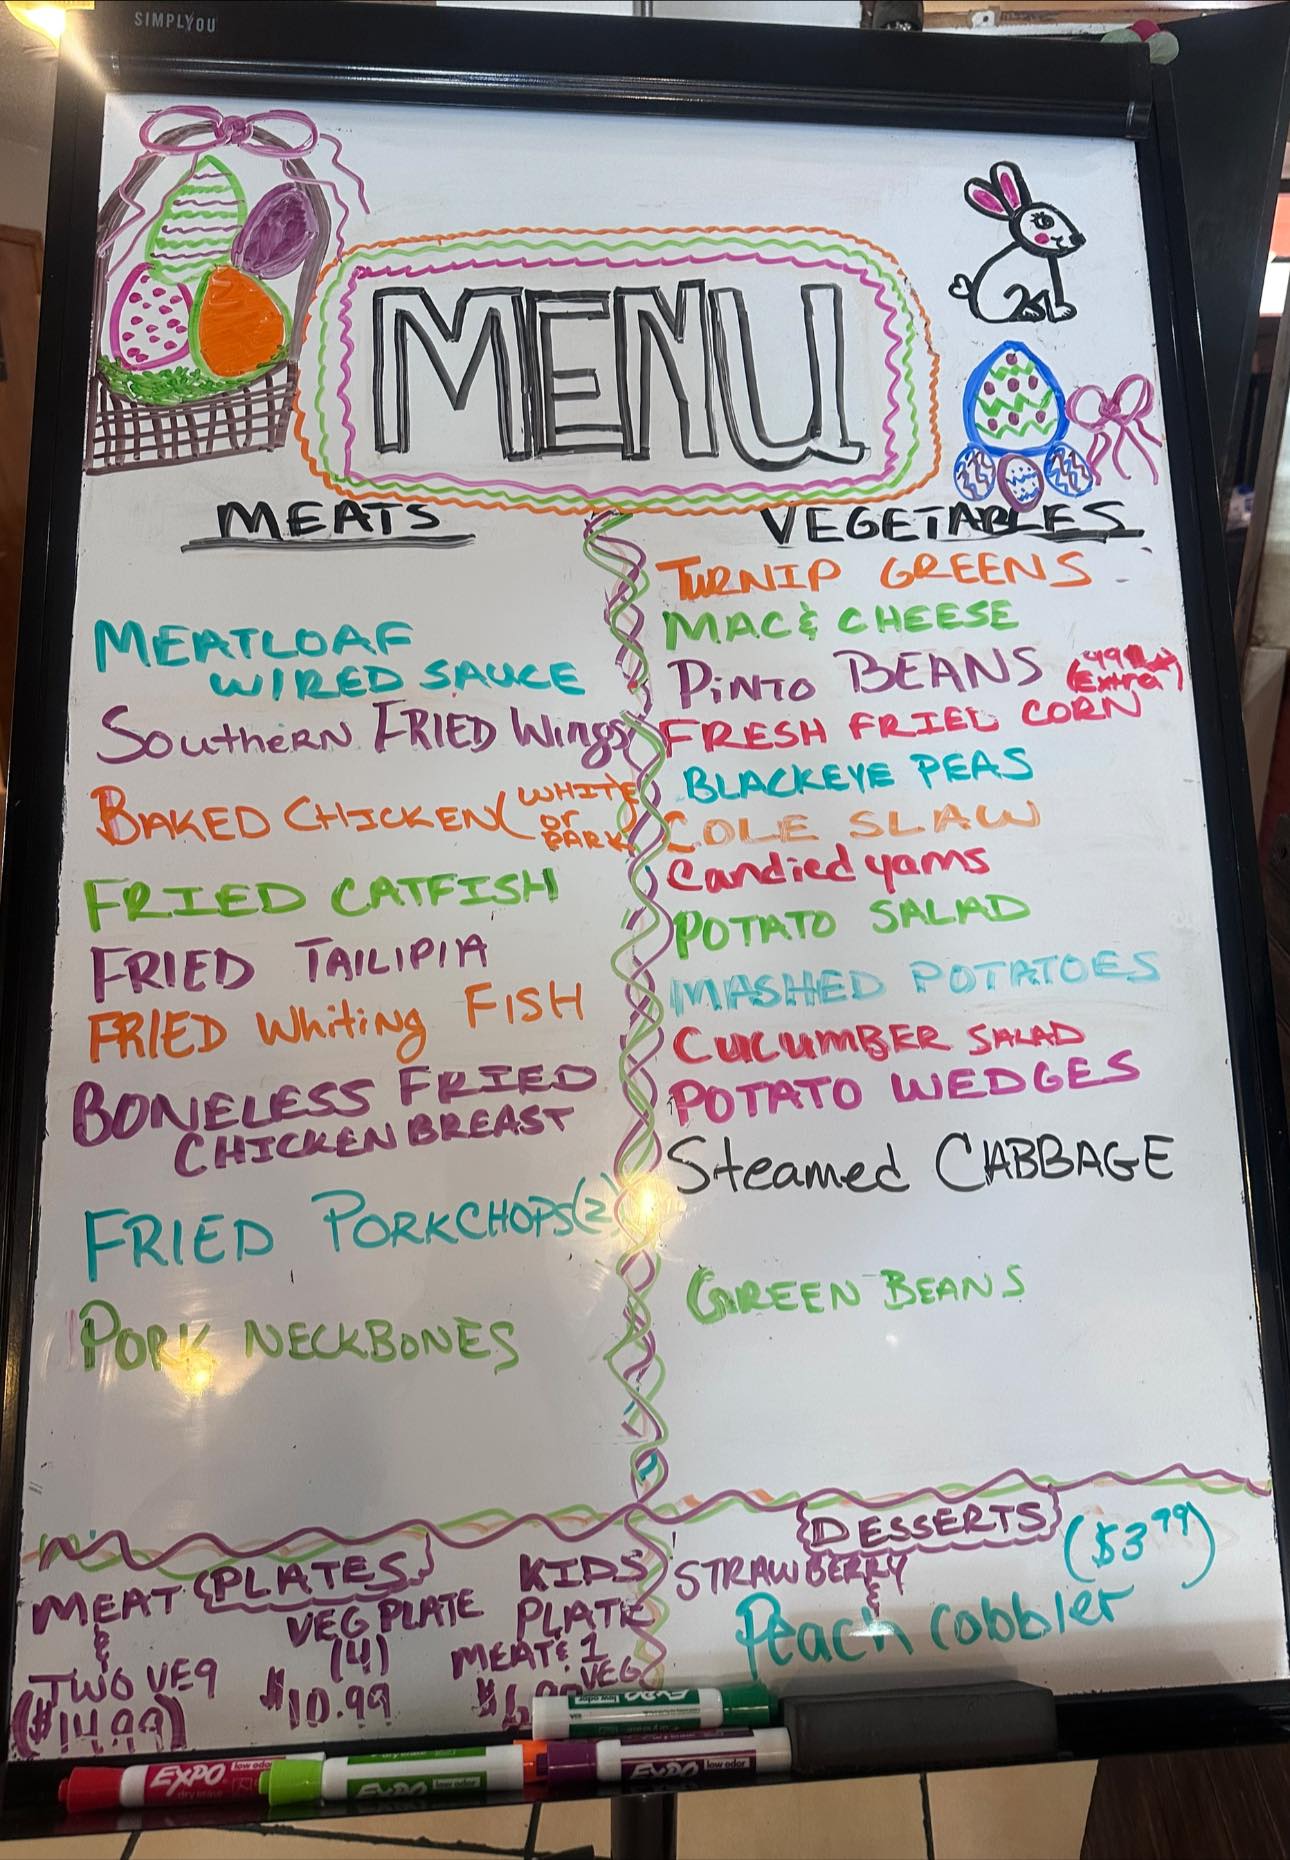 SIMPLYOU
MENU
MEATS
MEATLOAF
W/RED SAUCE
Southern FRIED Wings
BAKED CHICKEN (WHITE
or
DARK
FRIED CATFISH
FRIED TAILIPIA
FRIED Whiting FISH
BONELESS FRIED
CHICKEN BREAST
FRIED PORKCHOPS (2)
PORK NECKBONES
VEGETABLES
TURNIP GREENS
MAC & CHEESE
PiNTO BEANS
(Extra)
FRESH FRIED CORN
BLACKEYE PEAS
COLE SLAW
Candied yams
POTATO SALAD
MASHED POTATOES
CUCUMBER SALAD
POTATO WEDGES
Steamed CABBAGE
GREEN BEANS
PLATES
MEAT
&
TWO VEG
($14.99)
VEG PLATE
(4)
$10.99
KIDS
PLATE
MEAT & 1
VEG
DESSERTS
($3.99)
STRAWBERRY
&
Peach cobbler
EXPO
low odor
EXPO
EXPO low odor
EXPO low odor